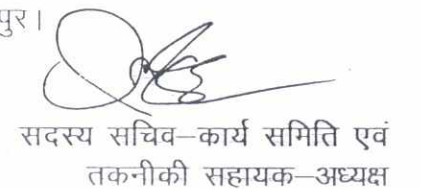 पुर।
सदस्य सचिव–कार्य समिति एवं
तकनीकी सहायक–अध्यक्ष